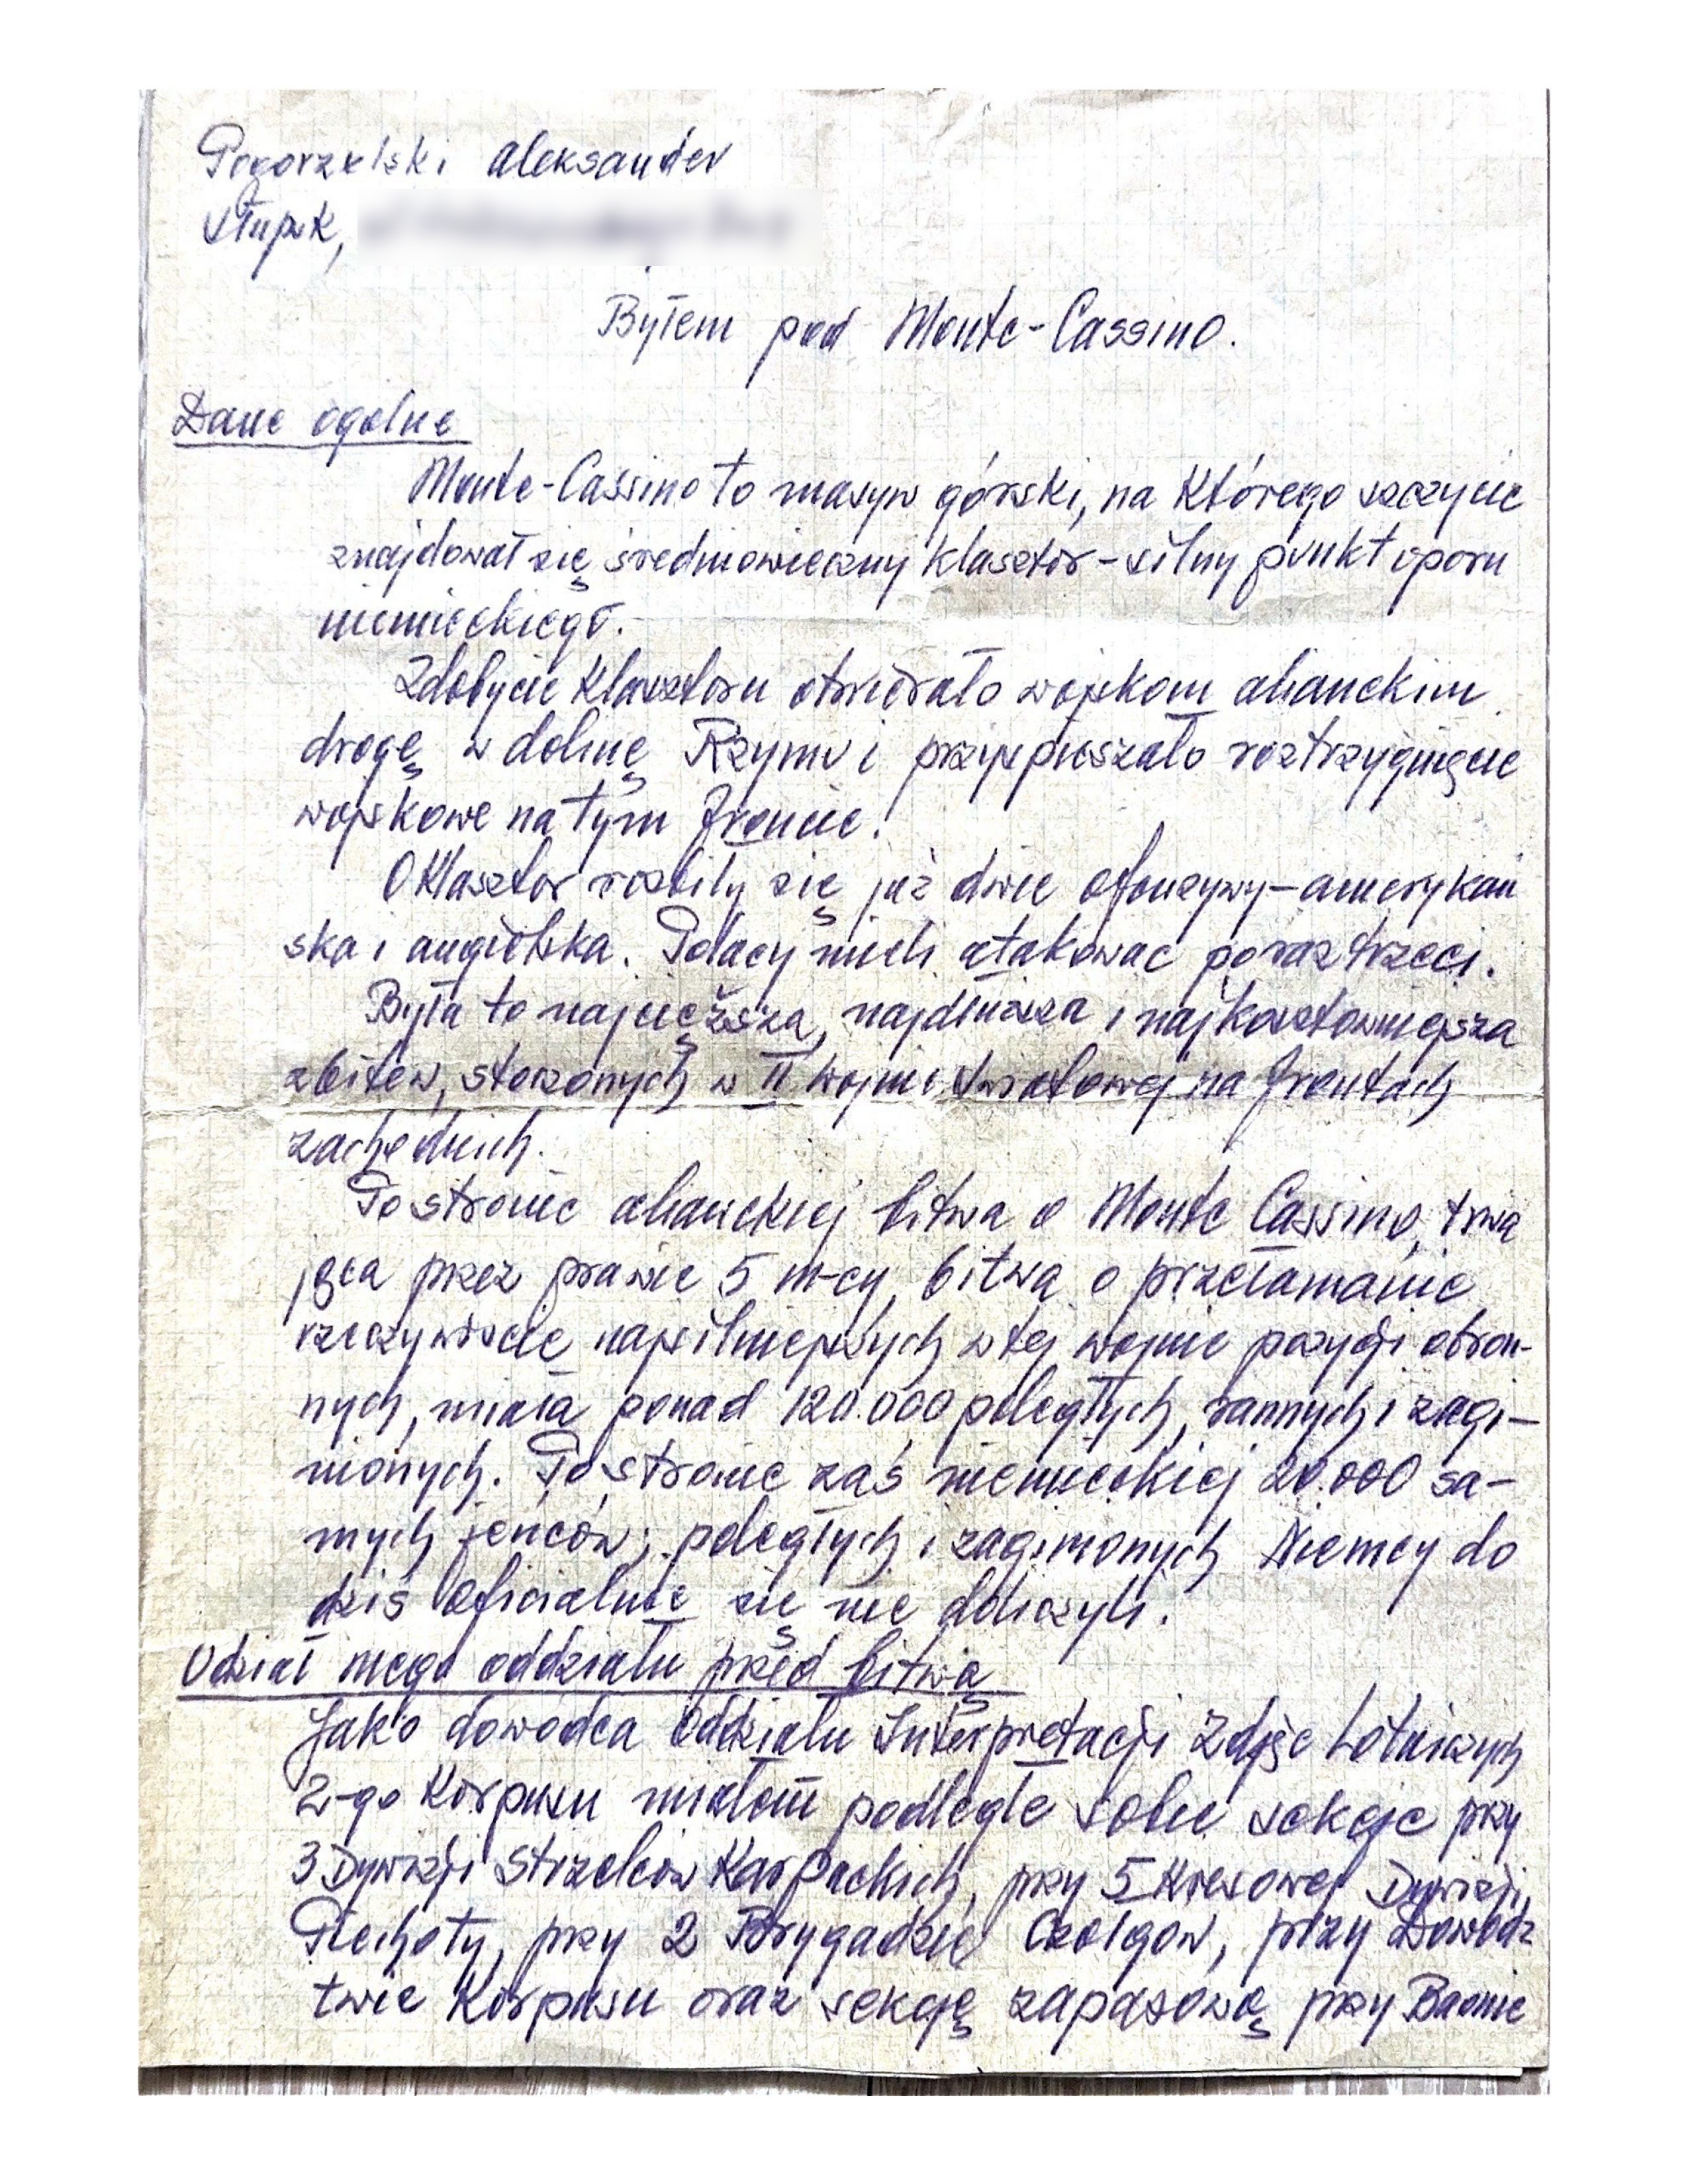 Pogorzelski Aleksander
Słupsk,
Byłem pod Monte-Cassino.
Dane ogolne
Monte-Cassino to masyw górski, na którego szczycie
znajdował się średniowieczny klasztor - silny punkt oporu
niemieckiego.
Zdobycie klasztoru otwierało wojskom alianckim
drogę w dolinę Rzymu i przyspieszało roztrzygnięcie
wojskowe na tym froncie.
O klasztor rozbiły się już dwie ofenzywy - amerykań
ska i angielska. Polacy mieli atakować po raz trzeci.
Była to najcięższa, najdłuższa i najkosztowniejsza
z bitew, stoczonych w II wojnie światowej na frontach
zachodnich.
Po stronie alianckiej bitwa o Monte Cassino, trwa
jąca przez prawie 5 m-cy, bitwa o przełamanie
rzeczywiście najsilniejszych w tej wojnie pozycji obron-
nych, miała ponad 120.000 poległych, rannych i zagi-
nionych. Po stronie zaś niemieckiej 20.000 sa-
mych jeńców; poległych i zaginionych Niemcy do
dziś oficialnie się nie doliczyli.
Udział mego oddziału przed bitwą
Jako dowódca Oddziału Interpretacji Zdjęć Lotniczych
2-go Korpusu miałem podległe sobie sekcje przy
3 Dywizji Strzelców Karpackich, przy 5 Kresowej Dywizji
Piechoty, przy 2 Brygadzie Czołgów, przy Dowódz
twie Korpusu oraz sekcję zapasową przy Baonie